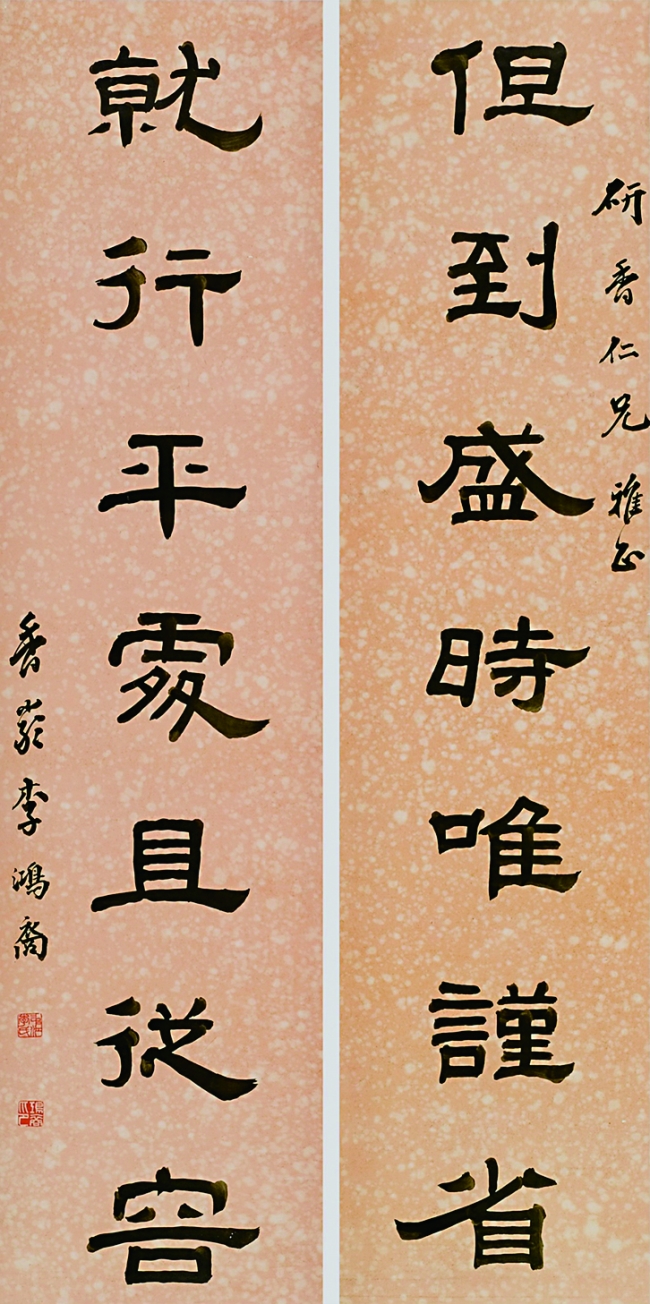 研香仁兄雅正
但到盛時唯謹省
就行平處且從容
香嚴李鴻裔